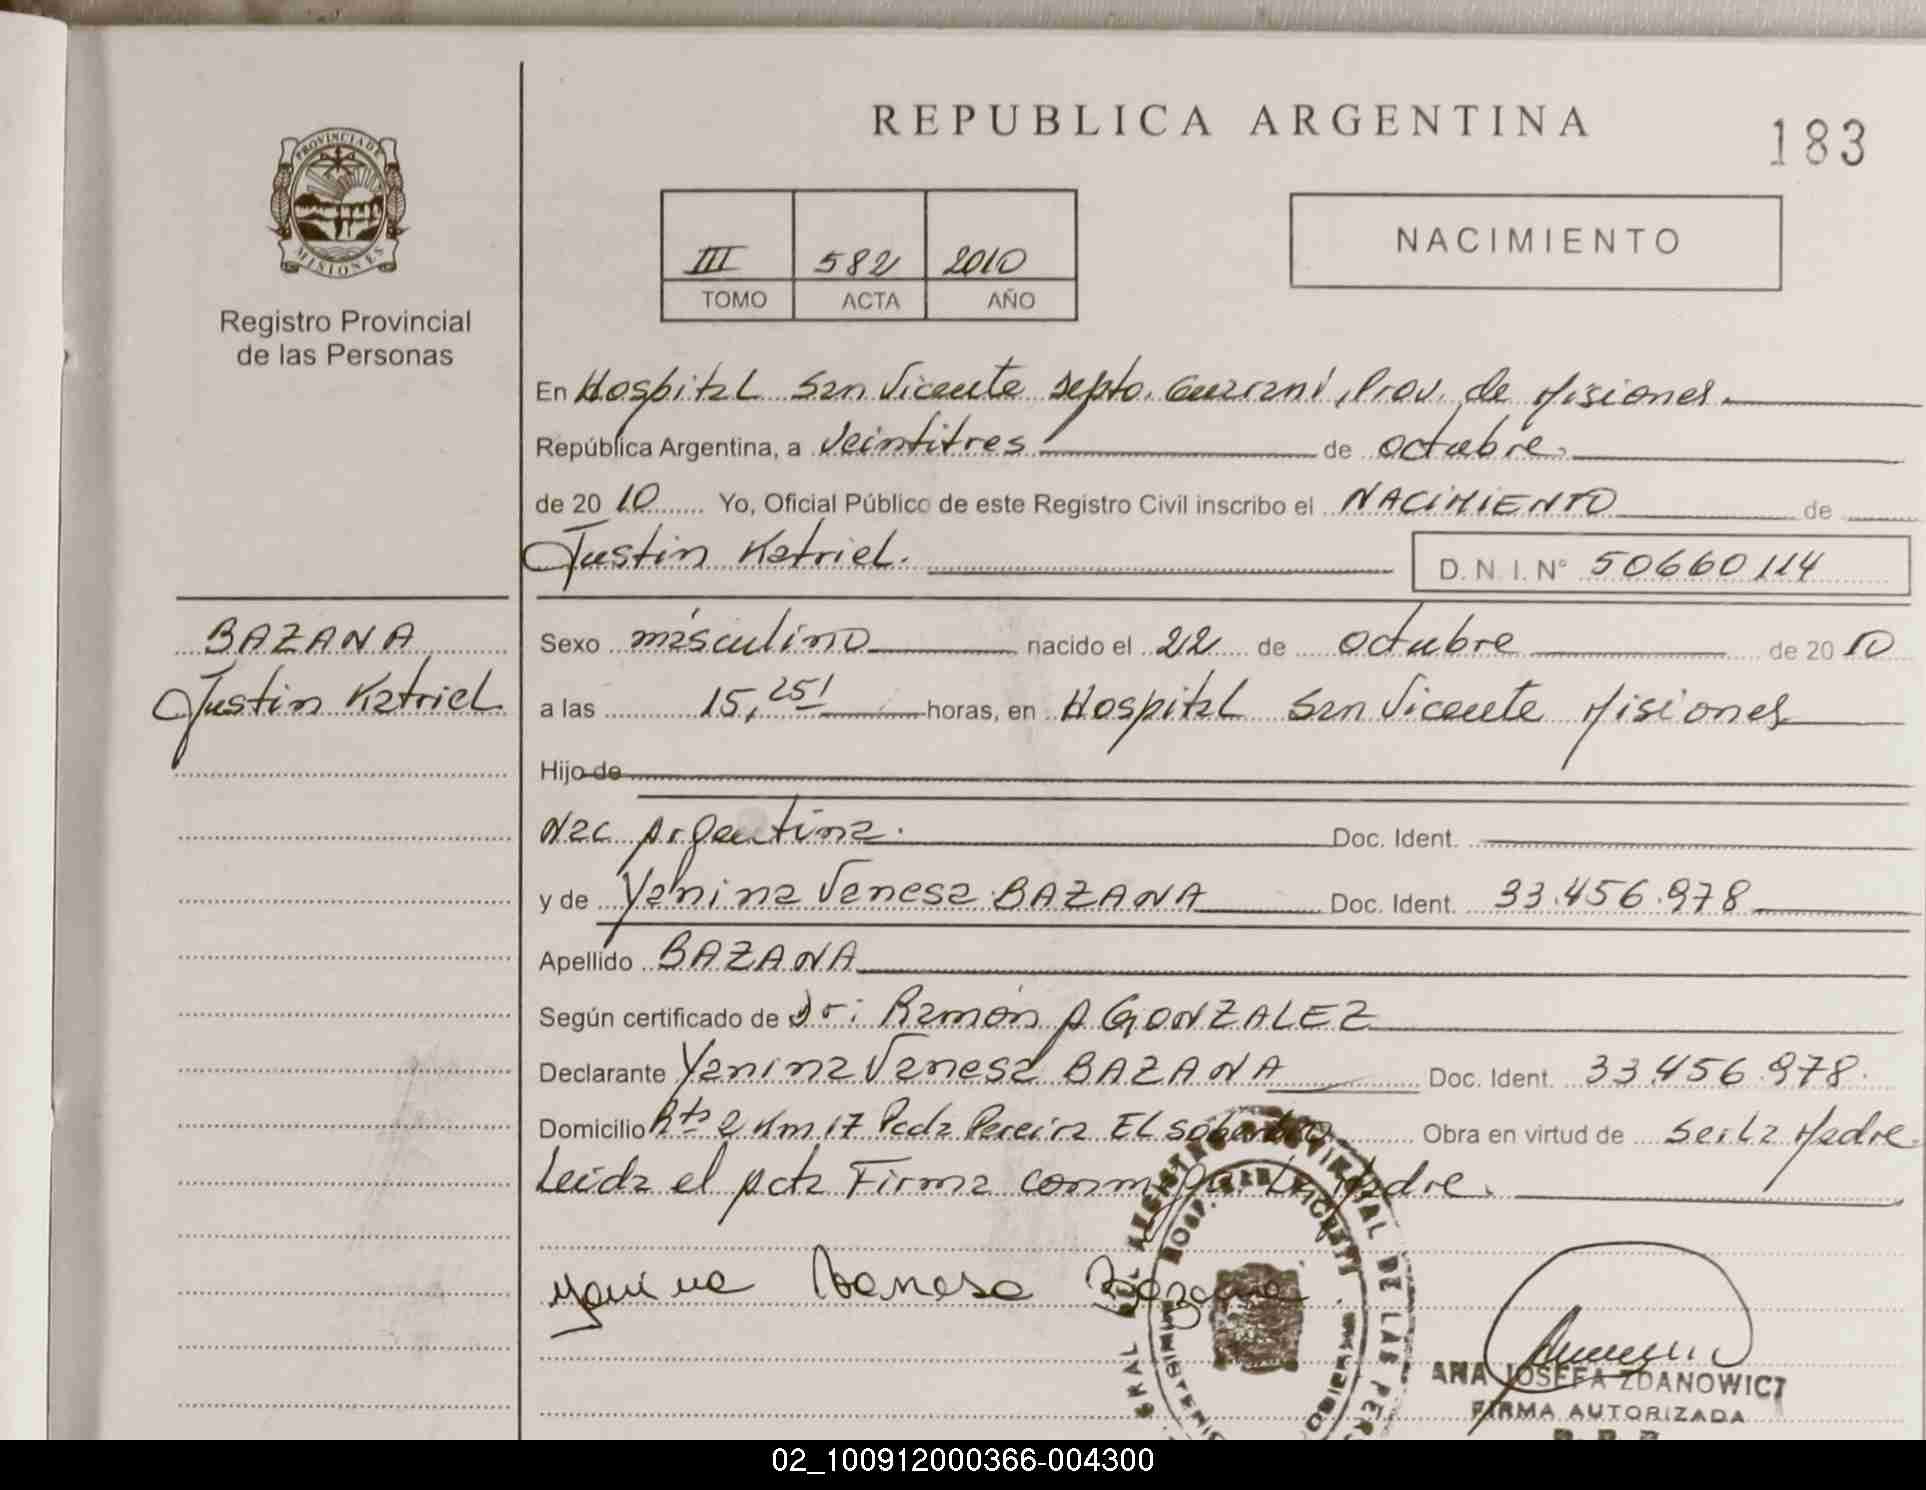 PROVINCIA DE
MISIONES
Registro Provincial
de las Personas
BAZANA
Justin Katriel
REPUBLICA ARGENTINA
183
III 582 2010
TOMO ACTA AÑO
NACIMIENTO
En Hospital San Vicente Depto. Guarani, Prov. de Misiones.
República Argentina, a Veintitres de octubre.
de 20 10 Yo, Oficial Público de este Registro Civil inscribo el NACIMIENTO de
Justin Katriel. D. N. I. N° 50660114
Sexo masculino nacido el 22 de octubre de 20 10
a las 15,25' horas, en Hospital San Vicente Misiones
Hijo de
Nac Argentina. Doc. Ident.
y de Yanina Vanesa BAZANA Doc. Ident. 33.456.978
Apellido BAZANA
Según certificado de Dr: Ramón A GONZALEZ
Declarante Yanina Vanesa BAZANA Doc. Ident. 33.456.978.
Domicilio Rta 2 Km 17 Pcda Pereira El Soberbio. Obra en virtud de Ser la Madre.
Leida el Acta Firma conmigo La Madre.
Yanina Vanesa Bazana
DE LAS
ANA JOSEFA ZDANOWICZ
FIRMA AUTORIZADA
02_100912000366-004300